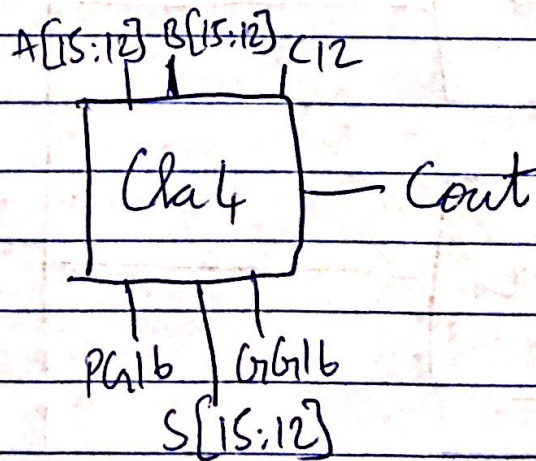 A[15:12] B[15:12] C12
Cla4
Cout
PG16 GG16
S[15:12]